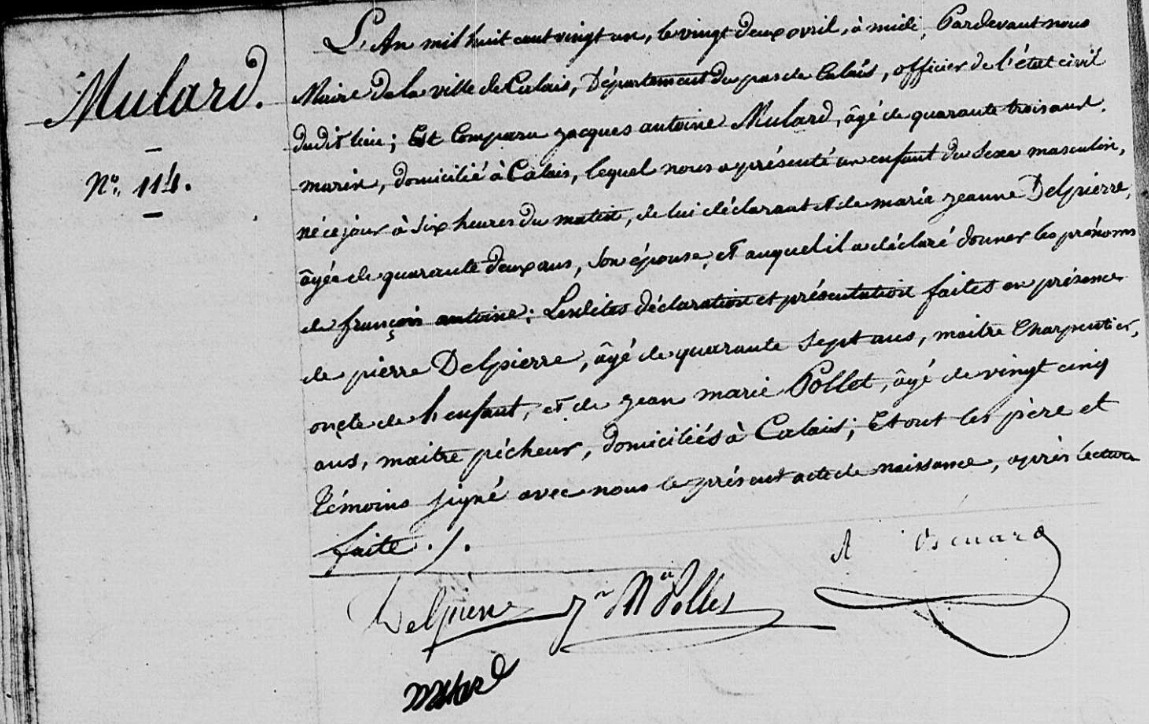 Mulard.
N.º 114.
L'An mil huit cent vingt un, le vingt deux avril, à midi, Pardevant nous
Maire de la ville de Calais, Département du pas de Calais, officier de l'état civil
dudit lieu; Est Comparu jacques antoine Mulard, âgé de quarante trois ans.
marin, domicilié à Calais, lequel nous a présenté un enfant du Sexe masculin,
né ce jour à Six heures du matin, de lui déclarant et de marie jeanne Delpierre,
âgée de quarante deux ans, Son épouse, et auquel il a déclaré donner les prénoms
de françois antoine; Lesdites déclaration et présentation faites en présence
de pierre Delpierre, âgé de quarante Sept ans, maitre Charpentier,
oncle de l'enfant, et de jean marie Pollet, âgé de vingt cinq
ans, maitre pécheur, domiciliés à Calais; Et ont les père et
témoins signé avec nous le présent acte de naissance, après lecture
faite ./.
Delpierre Jn Mie Pollet
Mulard